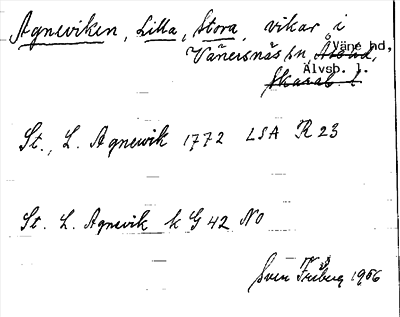 Agneviken, Lilla, Stora, vikar i
Vänersnäs sn, Åse hd, Väne hd,
Skarab. l. Älvsb. l.
St., L. Agnevik 1772 LSA R 23
St. L. Agnevik k G 42 NO
Sven Friberg 1906